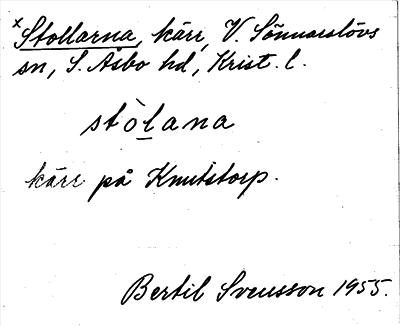 x Stollarna, kärr, V. Sönnarslövs
sn, S. Åsbo hd, Krist. l.
stòlana
kärr på Knutstorp.
Bertil Svensson 1955.